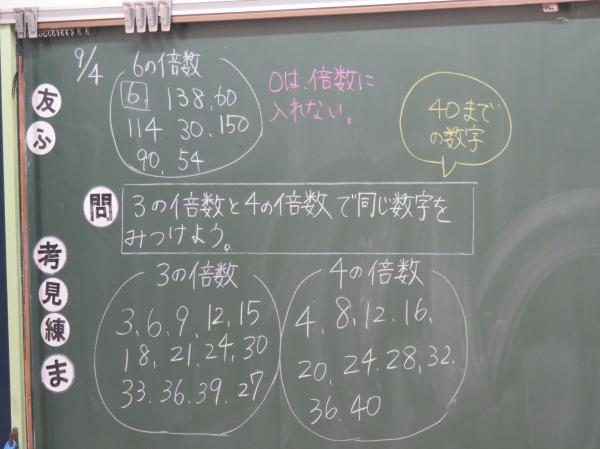 9/4
6の倍数
6. 138.60
114 30.150
90.54
0は、倍数に
入れない。
40まで
の数字
友
ふ
問
3の倍数と4の倍数で同じ数字を
みつけよう。
考
見
練
ま
3の倍数
3.6.9.12.15
18.21.24.30
33.36.39.27
4の倍数
4.8.12.16.
20.24.28.32.
36.40